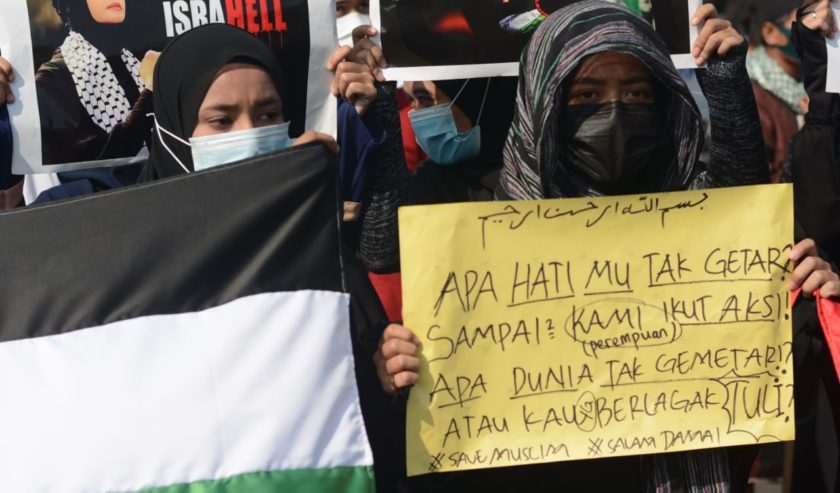 ISRAHELL
بسم الله ارحمن ارحيم
APA HATI MU TAK GETAR?
SAMPAI² KAMI IKUT AKSI!
(perempuan)
APA DUNIA TAK GEMETAR!?
ATAU KAU BERLAGAK TULI?
#SAVE MUSLIM #SALAM DAMAI